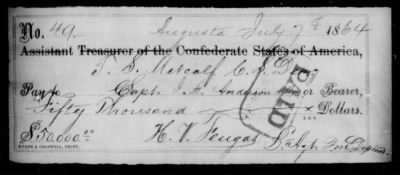 No. 49. Augusta July 7th 1864
Assistant Treasurer of the Confederate States of America,
T. S. Metcalf C. S. D.
Pay to Capt. A. Anderson or Bearer,
Fifty Thousand Dollars.
100
$50,000.00 H. V.
EVANS & COGSWELL, PRINT.
PAID